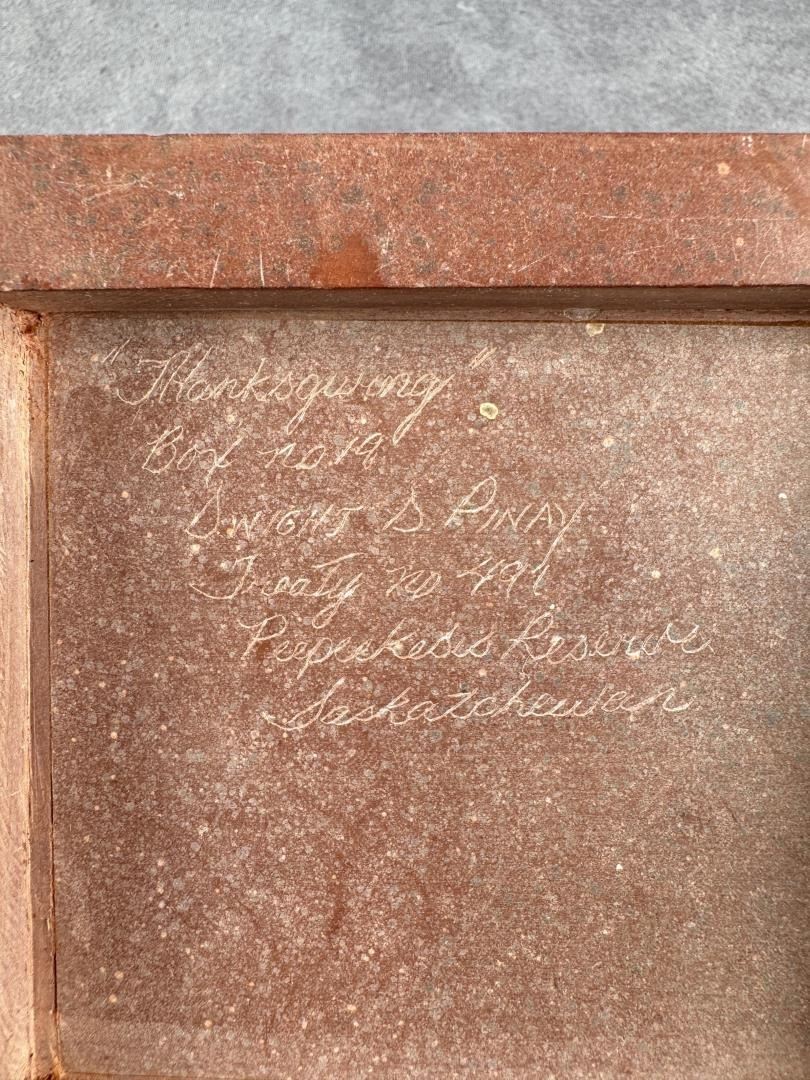 "Thanksgiving"
Box no 19
DWIGHT S. PINAY
Treaty no 491
Peepeekesis Reserve
Saskatchewan